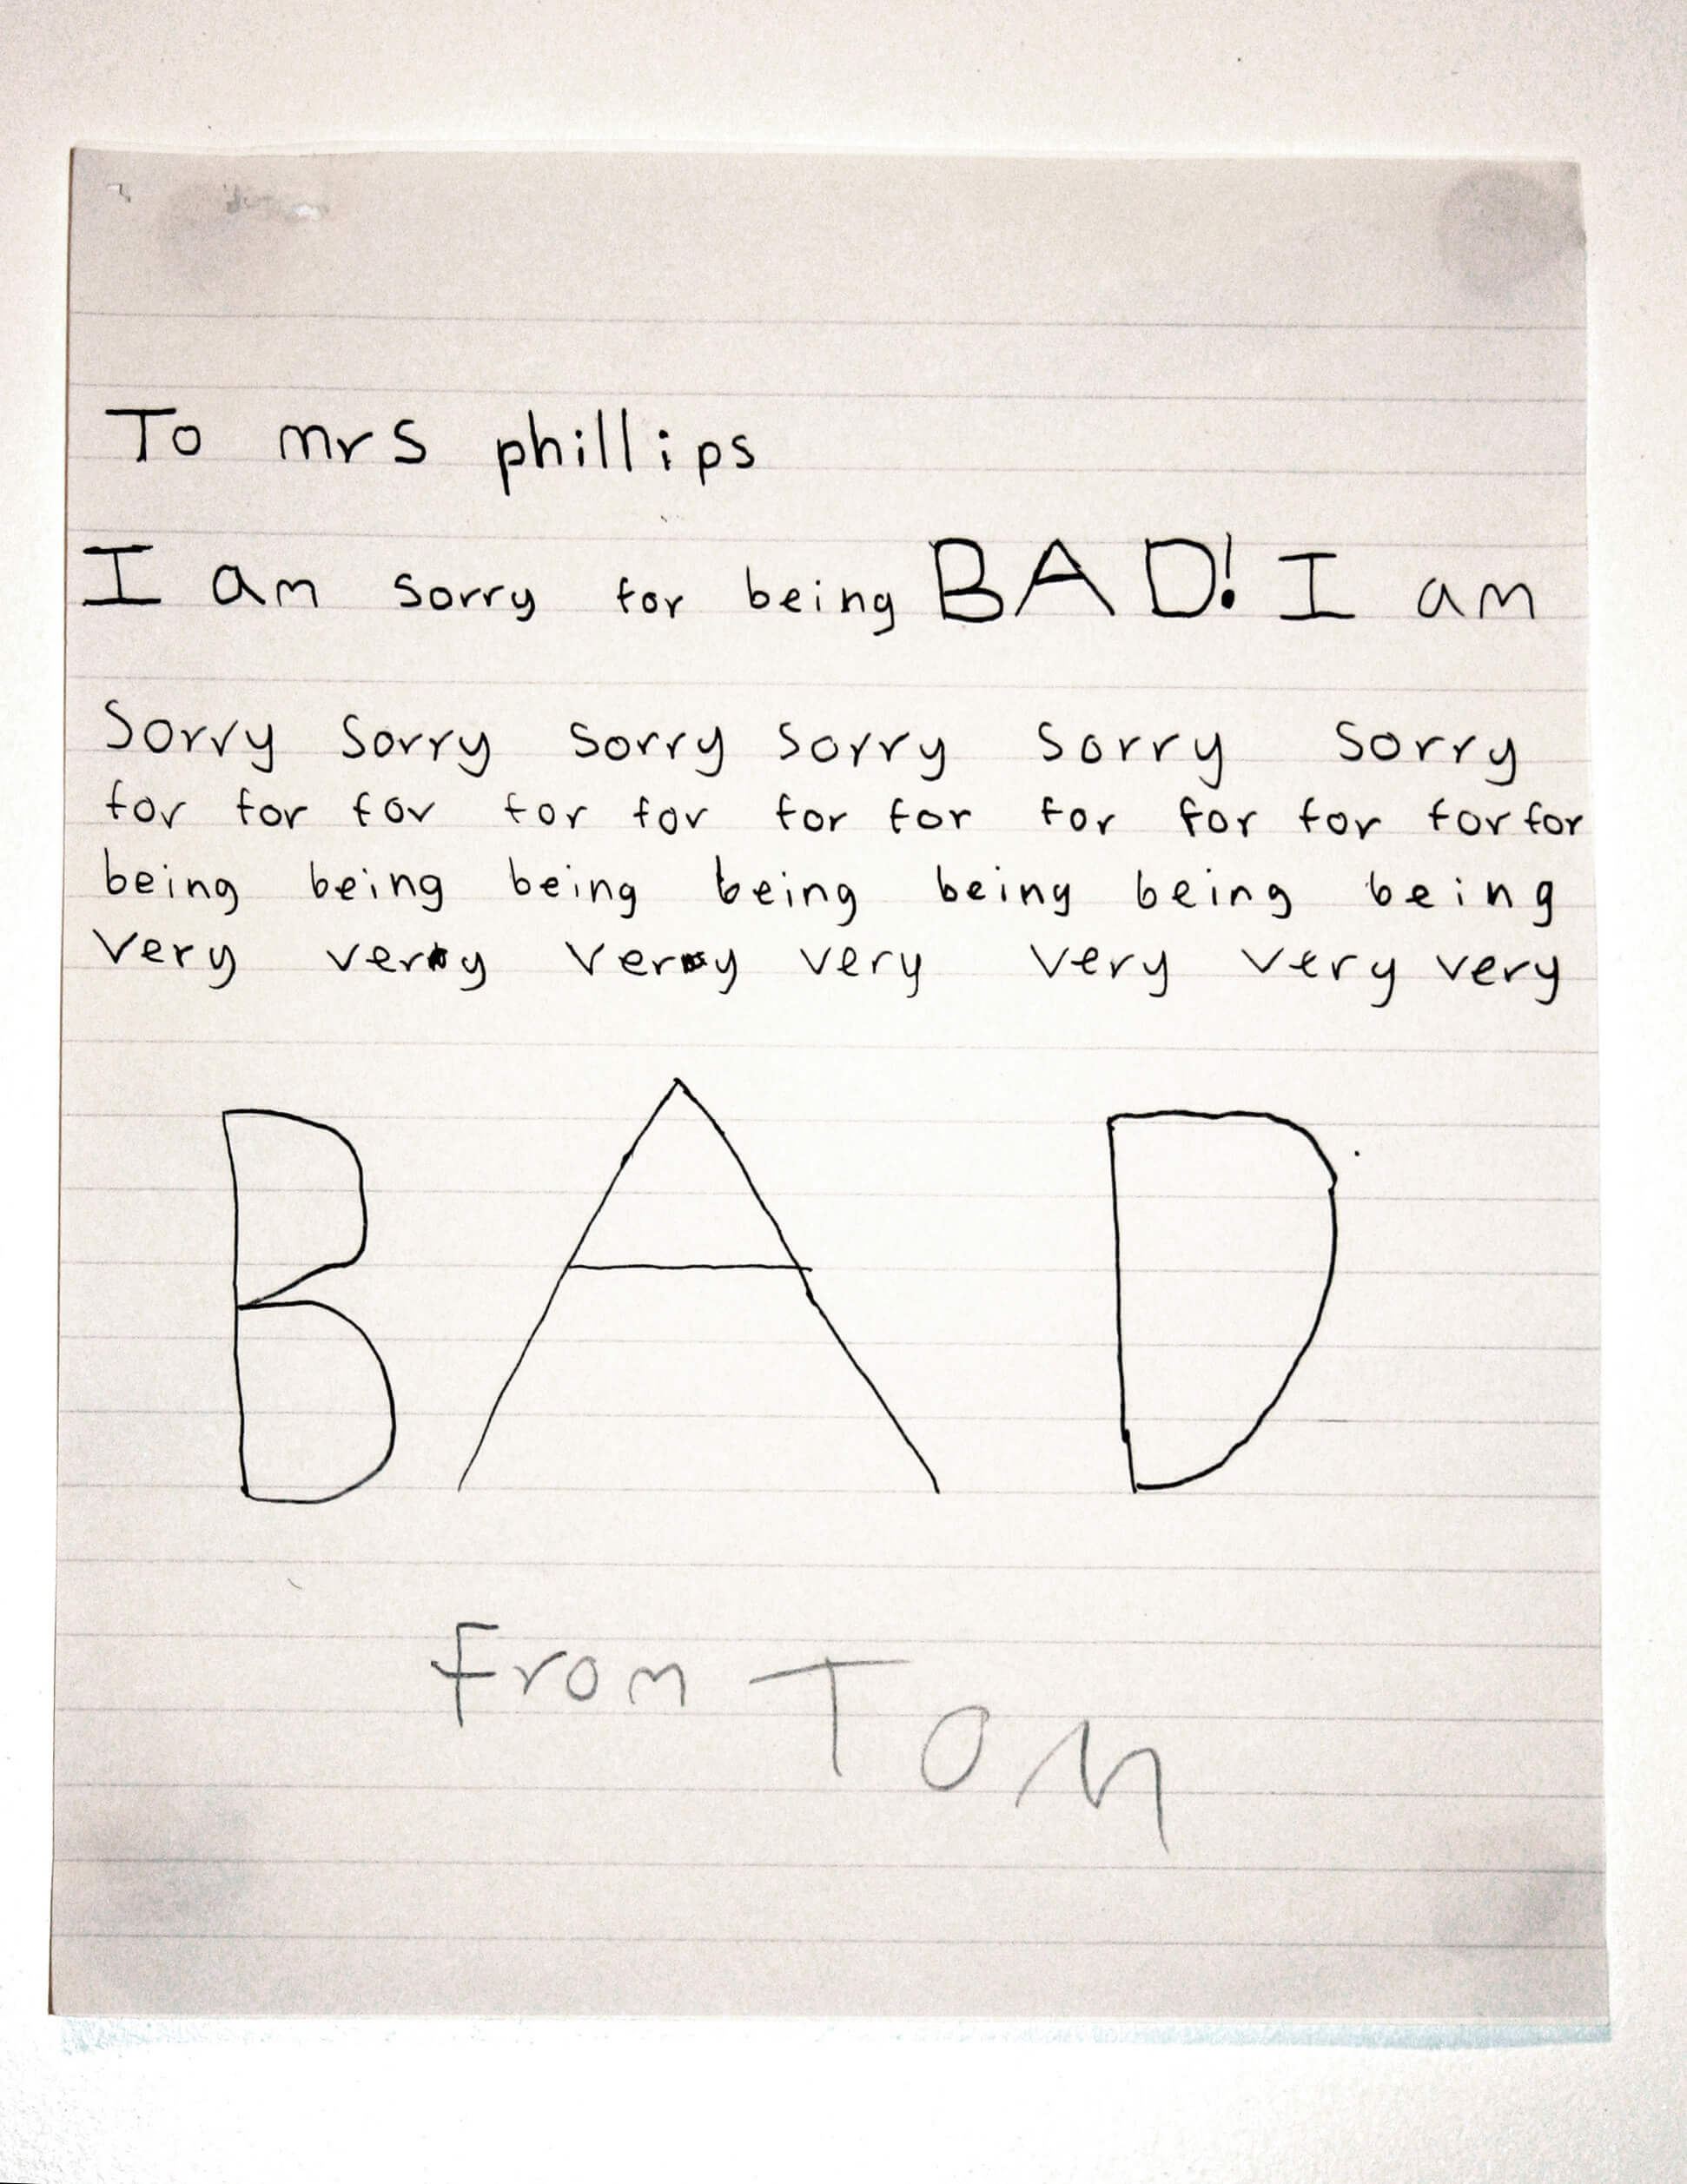 To mrs phillips
I am sorry for being BAD! I am
Sorry Sorry sorry sorry sorry sorry
for for for for for for for for for for for for
being being being being being being being
Very very very very very very very
BAD
From Tom